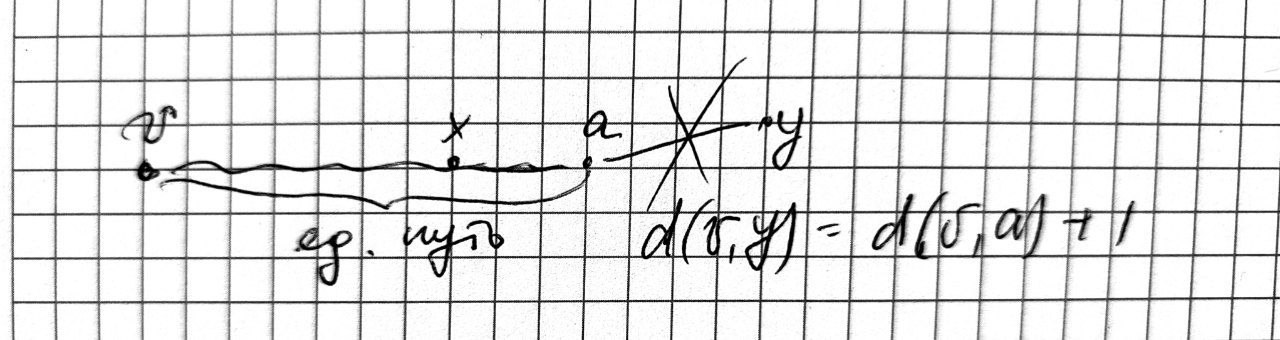 v x a y
ед. путь d(v, y) = d(v, a) + 1